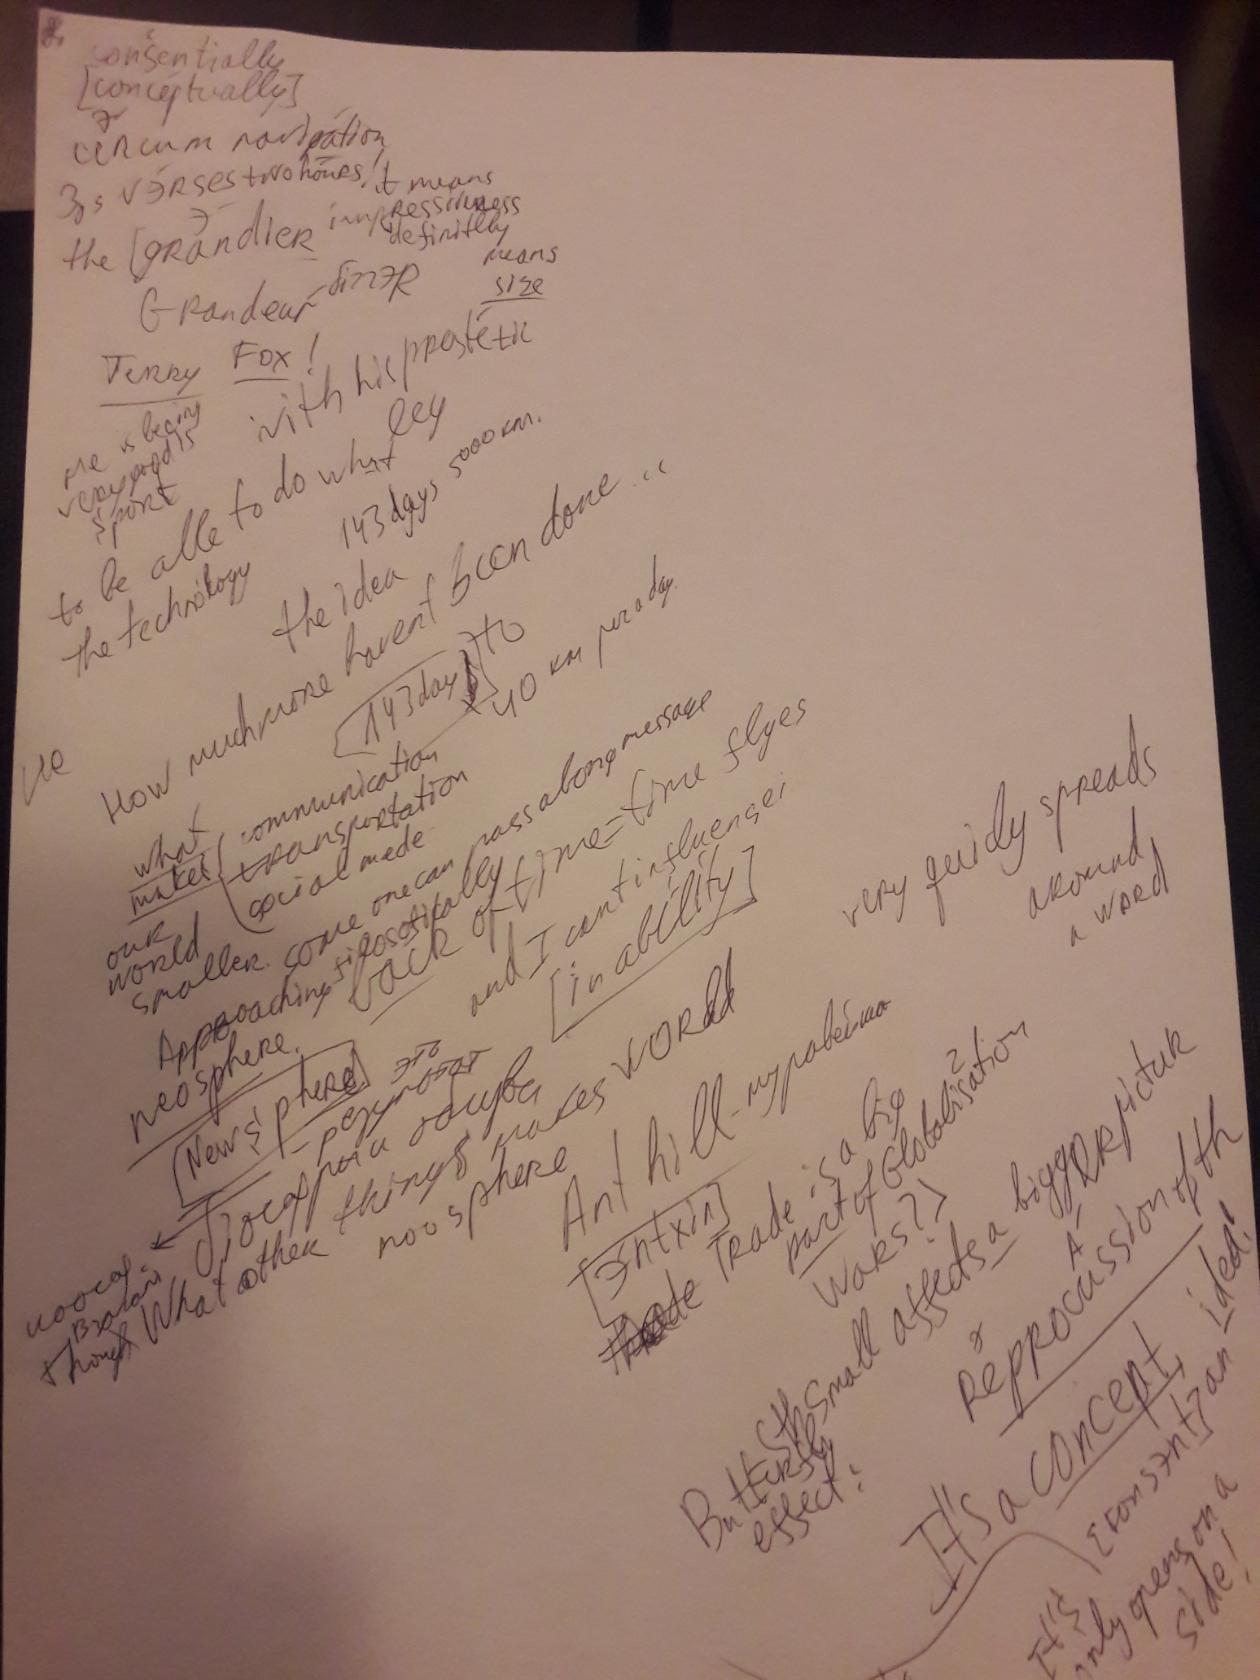 consentially
[conceptually]
circum navigation
verses two hours!
it means
the [grandier impressivness
definitlly
Grandeur means
size
Terry Fox!
He is being
very good
sport
with his prostetic
leg
to be able to do what
the technology
143 days 5000 km.
the idea
How much more havent been done...
He
[143 days] to
40 km per a day.
what
makes
our
world
smaller.
communication
transportation
social mede
some one can pass along message
Approaching filosofically
neosphere.
lack of time = time flyes
and I cant influense
[in ability]
very quicly spreads
around
a word
[New s phere]
это
результат
биосфрои
What other things makes world
noosphere
though
Ant hill - муравейник
Trade is a big
part of Globalisation
Wars?
sth small affects a bigger pictur
Butterfly
effect!
Reprocussion of th
It's a concept, an idea!
It's
only opens on a
side!